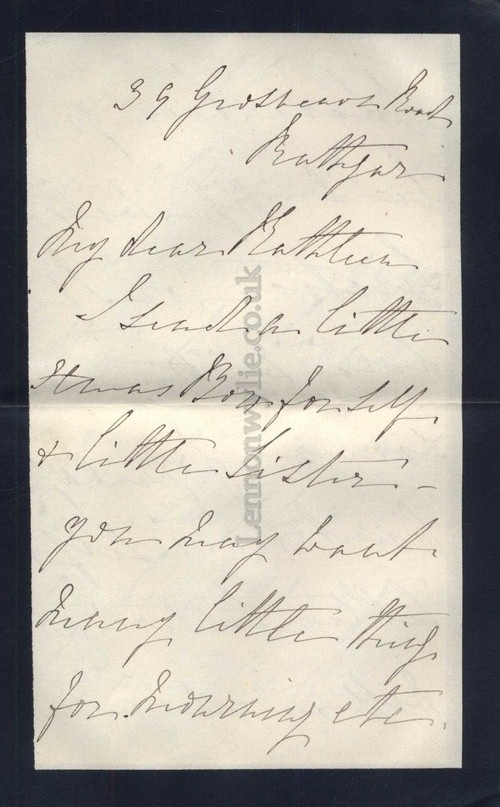 39 Grosvenor Road
Rathgar
My dear Kathleen
I send a little
Xmas Box for self
& little Sister -
you may want
many little things
for mourning etc.
Lennonwylie.co.uk